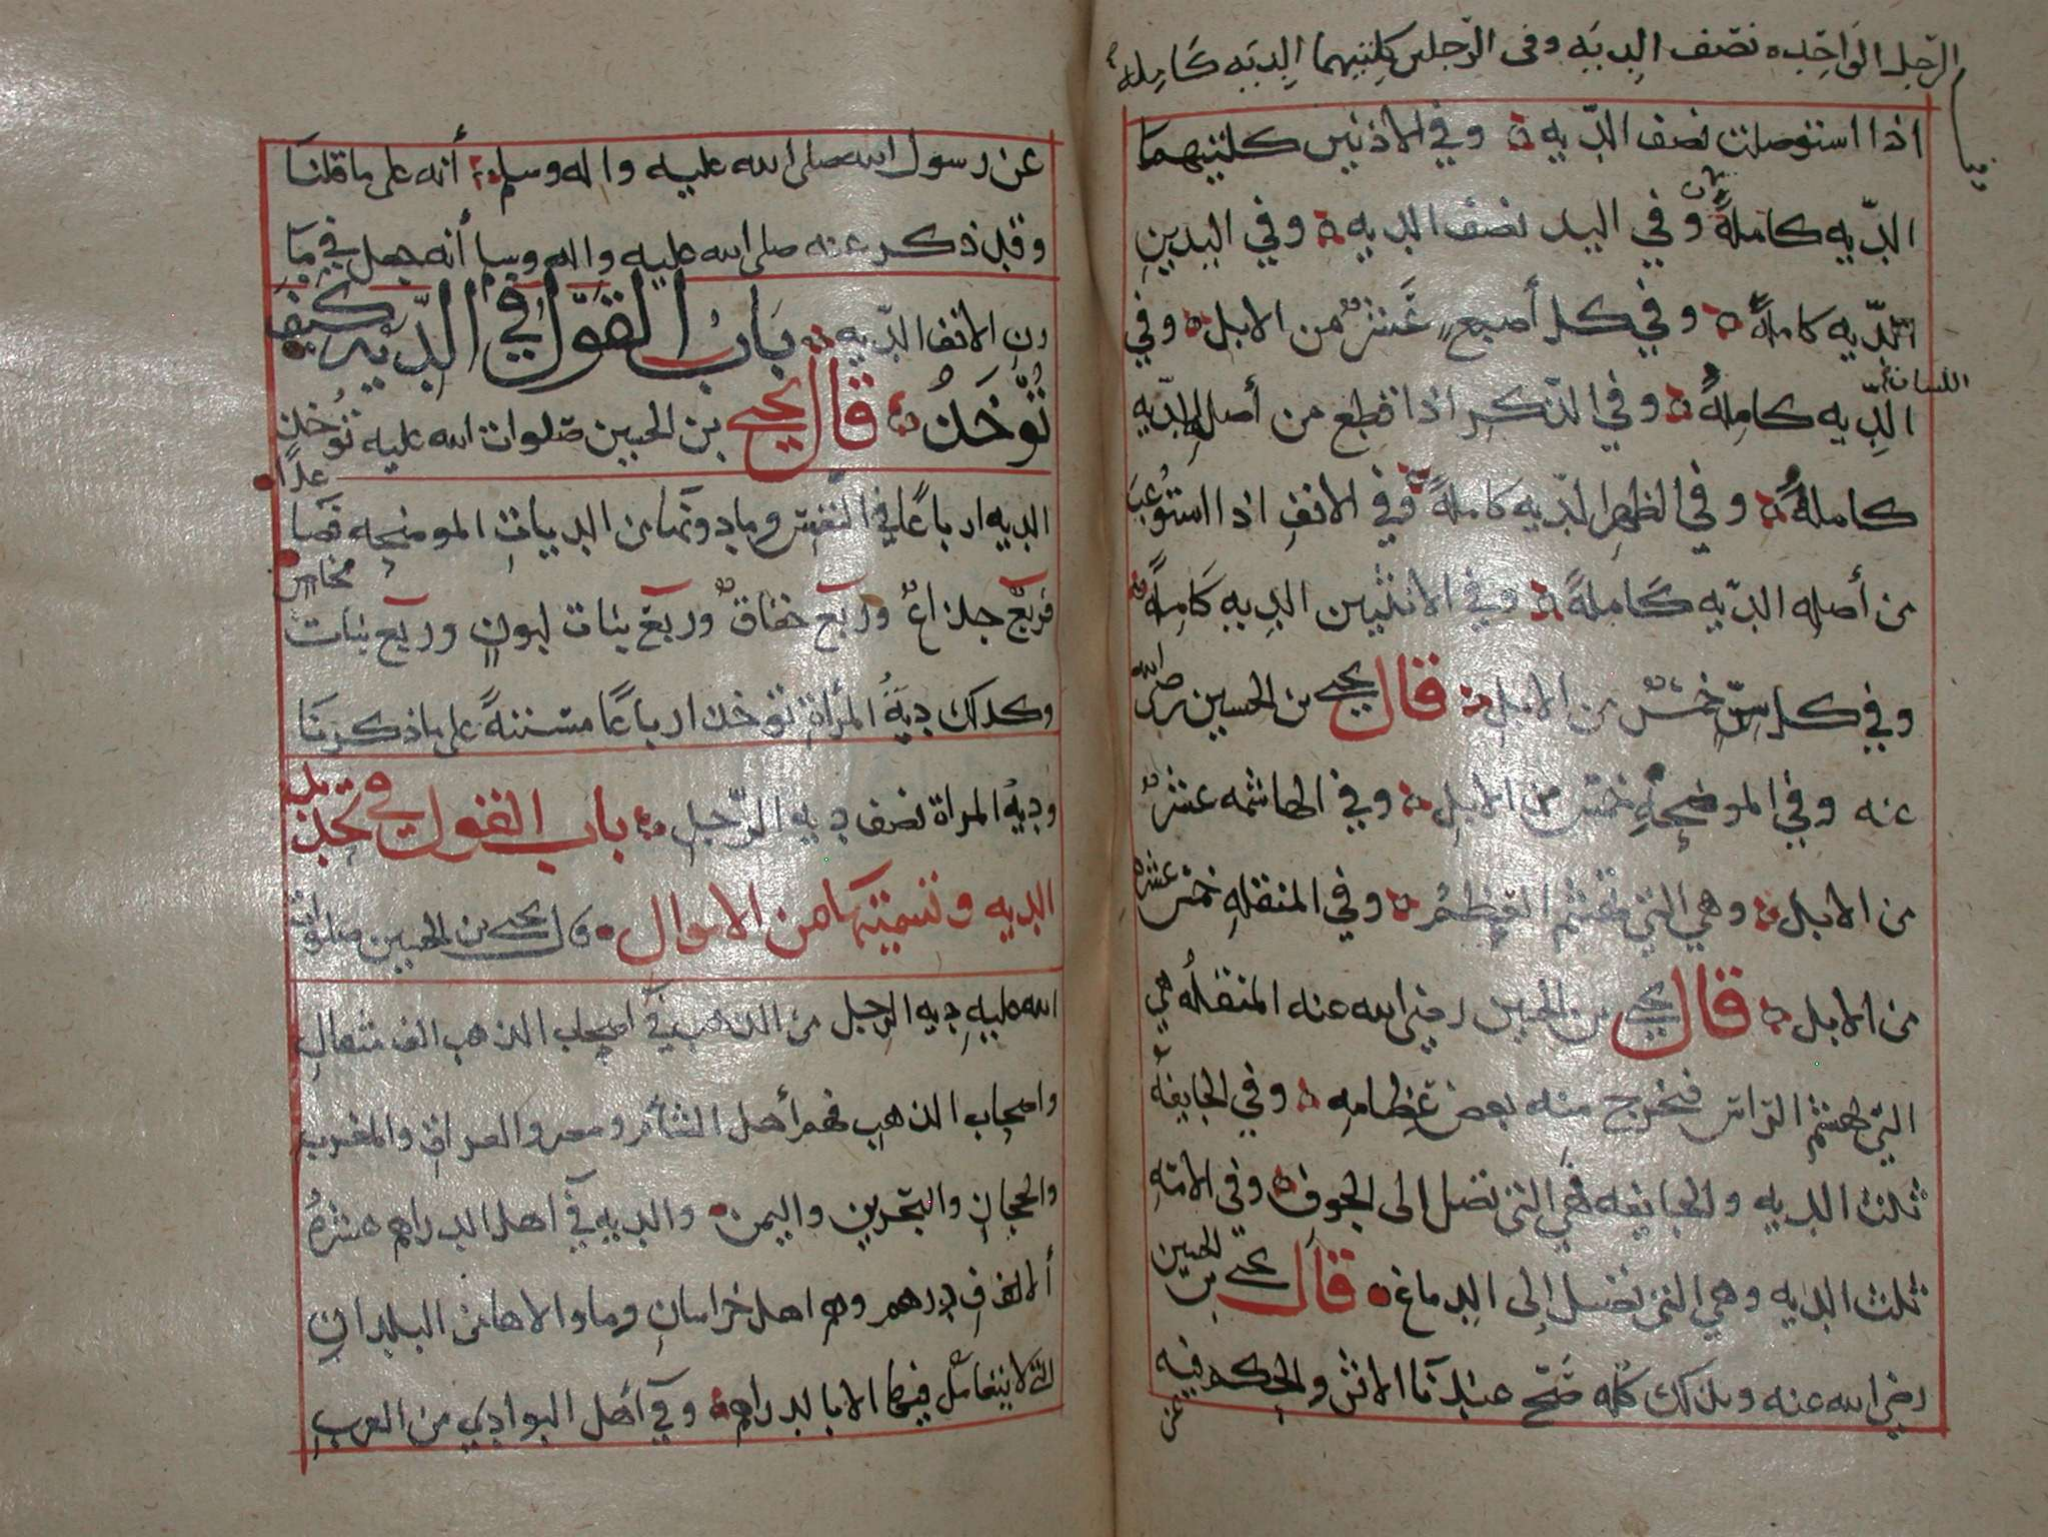 الرجل الواحده نصف الديه وفى الرجلين كلتيهما الديه كامله
اذا استوصلت نصف الديه وفي الاذنين كلتيهما
الديه كاملة وفي اليد نصف الديه وفي اليدين
الديه كاملة وفي كل أصبع عشر من الابل وفي
اللسان
الديه كاملة وفي الذكر اذا قطع من أصله الديه
كاملة وفي الظهر الديه كاملة وفي الانف اذا استوعب
من أصله الديه كاملة وفي الانثيين الديه كاملة
وفي كل سن خمس من الابل قال يحيى بن الحسين رضى الله
عنه وفي الموضحه خمس من الابل وفي الهاشمه عشر
من الابل وهي التي تهشم العظم وفي المنقله خمس عشره
من الابل قال يحيى بن الحسين رضي الله عنه المنقله هي
التي تهشم الراس فيخرج منه بعض عظامه وفي الجايفه
ثلث الديه والجايفه هي التي تصل الى الجوف وفي الامه
ثلث الديه وهي التي تصل إلى الدماغ قال يحيى بن الحسين
رضي الله عنه وبذلك كله صح عندنا الاثر والحكم فيه
عن
عن رسول الله صلى الله عليه واله وسلم أنه على ما قلنا
وقد ذكر عنه صلى الله عليه واله وسلم أنه جعل في ما
رن الانف الديه باب القول في الديه كيف
تؤخذ قال يحيى بن الحسين صلوات الله عليه تؤخذ
الديه ارباعا في النفس وما دونها من الديات الموضحه فصاعدا
فربع جذاع وربع حقاق وربع بنات لبون وربع بنات مخاض
وكذلك دية المرأة تؤخذ ارباعا مسننة على ما ذكرنا
ودية المراة نصف ديه الرجل باب القول في تحديد
الديه وتسميتها من الاموال قال يحيى بن الحسين صلوات
الله عليه ديه الرجل من الذهب في اصحاب الذهب الف مثقال
واصحاب الذهب فهم أهل الشام ومصر والعراق والمغرب
والحجاز والبحرين واليمن والديه في اهل الدراهم عشرة
ألاف درهم وهم اهل خراسان وما والاها من البلدان
التي لا يتعامل فيها الا بالدراهم وفي أهل البوادي من العرب